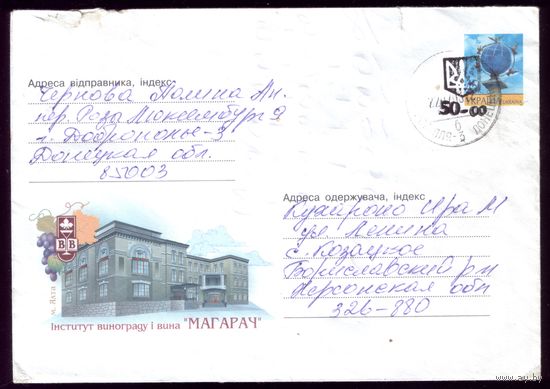 Адреса відправника, індекс
Чернова Полина Ан.
пер. Роза Люксембург 9
г. Доброполье-3
Донецкая обл.
85003
УКРАЇНА
50-00
Адреса одержувача, індекс
Ира М
ул. Ленина
с. Козацкое
Бориславский р-н
Херсонская обл
326-880
В В
м. Ялта
Інститут винограду і вина "МАГАРАЧ"